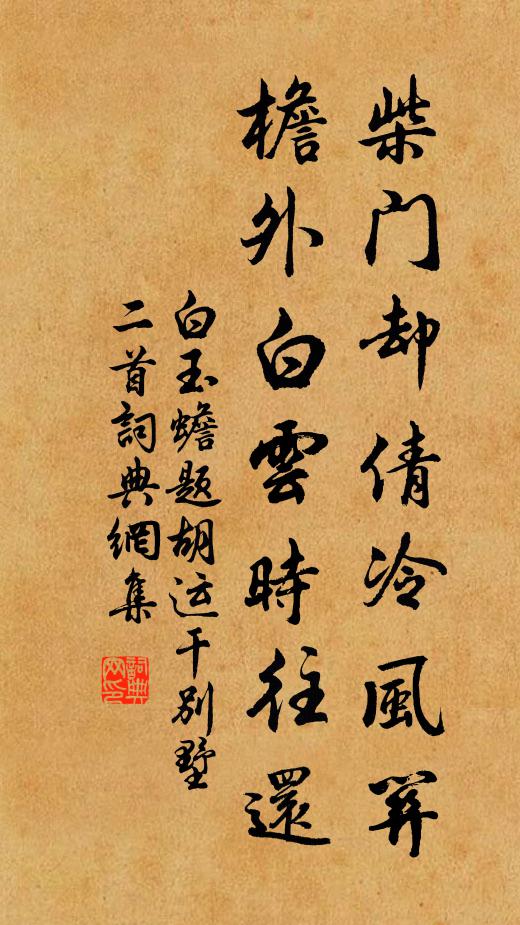 柴门却倩冷風關
檐外白雲時往還
白玉蟾题胡运干别墅
二首詞典網集
詞典
网印